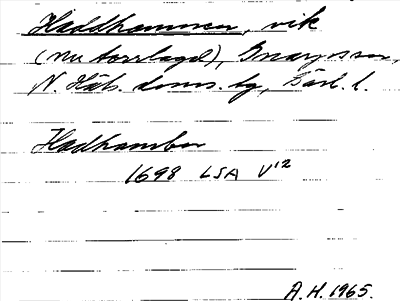 Haddhammaren, vik
(nu torrlagd), Snaryssn,
N. Häls. doms. bg, Gävl. l.
Hadhambar
1698 LSA V¹²
A.H. 1965.